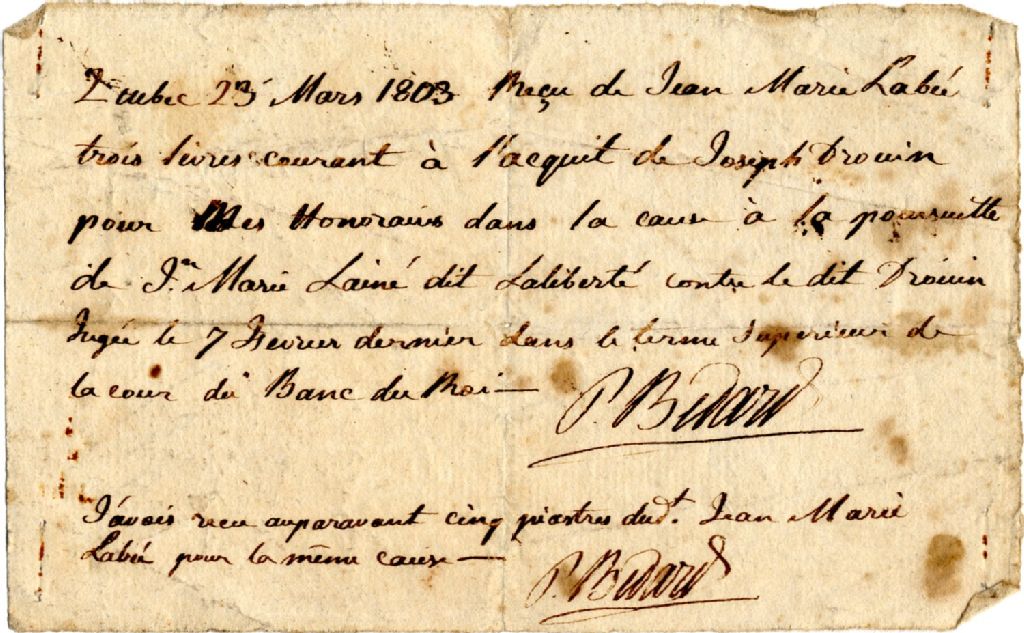 Quebec 23 Mars 1803 Reçu de Jean Marie Labée
trois livres courant à l'acquit de Joseph Drouin
pour Mes Honoraires dans la cause à la poursuitte
de Jn. Marie Lainé dit Laliberté contre le dit Drouin
Jugée le 7 Fevrier dernier dans le terme Superieur de
la cour du Banc du Roi —
P. Bedard
J'avois reçu auparavant cinq piastres dudt. Jean Marie
Labée pour la même cause —
P. Bedard